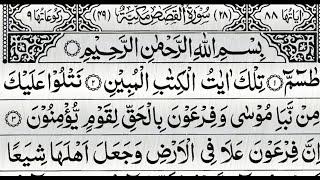 اٰیَاتُهَا ٨٨
(٢٨) سُوْرَةُ الْقَصَصِ مَكِّيَّةٌ (٤٩)
رُكُوْعَاتُهَا ٩
بِسْمِ اللّٰهِ الرَّحْمٰنِ الرَّحِيْمِ
طٰسٓمّٓ ۝١ تِلْكَ اٰيٰتُ الْكِتٰبِ الْمُبِيْنِ ۝٢ نَتْلُوْا عَلَيْكَ
مِنْ نَّبَاِ مُوْسٰى وَفِرْعَوْنَ بِالْحَقِّ لِقَوْمٍ يُّؤْمِنُوْنَ ۝٣
اِنَّ فِرْعَوْنَ عَلَا فِى الْاَرْضِ وَجَعَلَ اَهْلَهَا شِيَعًا